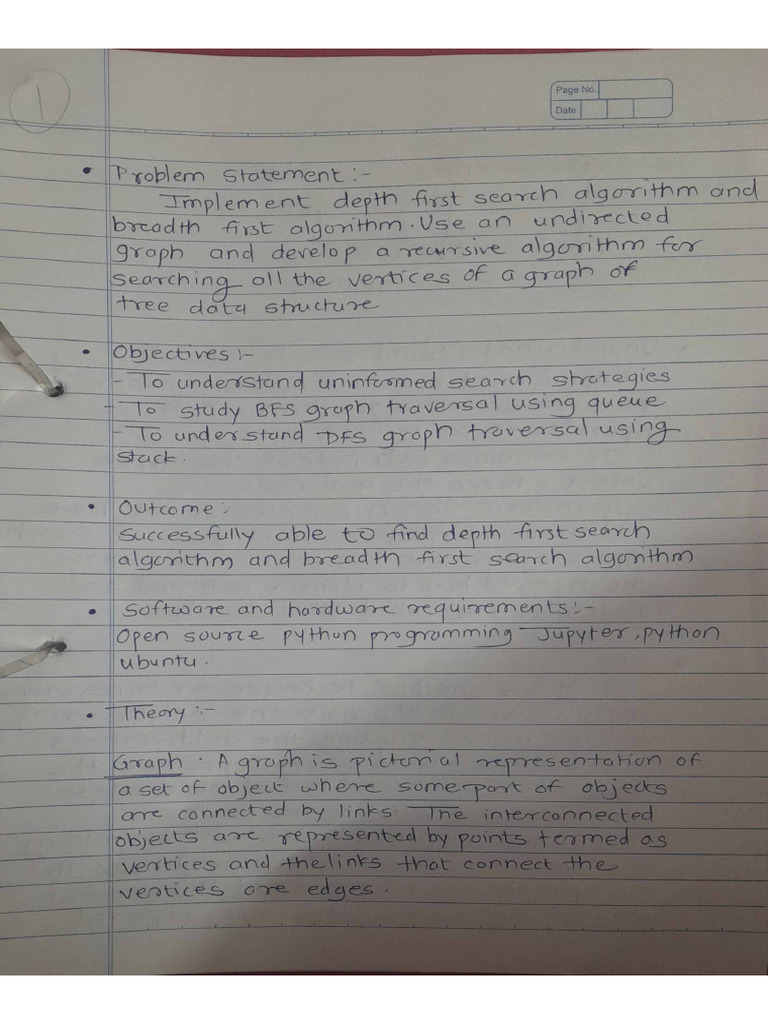 1
Page No.
Date
• Problem Statement :-
Implement depth first search algorithm and
breadth first algorithm. Use an undirected
graph and develop a recursive algorithm for
searching all the vertices of a graph of
tree data structure
• Objectives :-
- To understand uninformed search strategies
- To study BFS graph traversal using queue
- To understand DFS graph traversal using
stack.
• Outcome :
Successfully able to find depth first search
algorithm and breadth first search algorithm
• Software and hardware requirements :-
Open source python programming Jupyter, python
ubuntu.
• Theory :-
Graph : A graph is pictorial representation of
a set of object where some part of objects
are connected by links. The interconnected
objects are represented by points termed as
vertices and the links that connect the
vertices are edges.